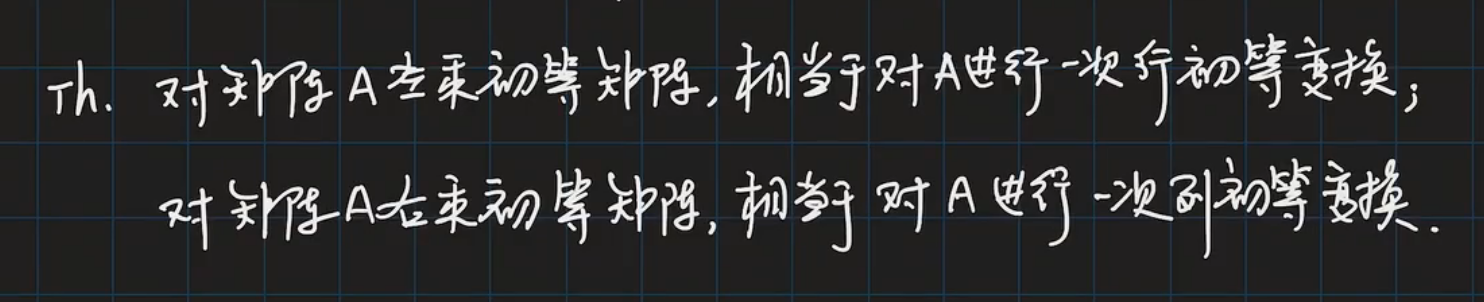 Th. 对矩阵A左乘初等矩阵,相当于对A进行一次行初等变换;
对矩阵A右乘初等矩阵,相当于对A进行一次列初等变换.